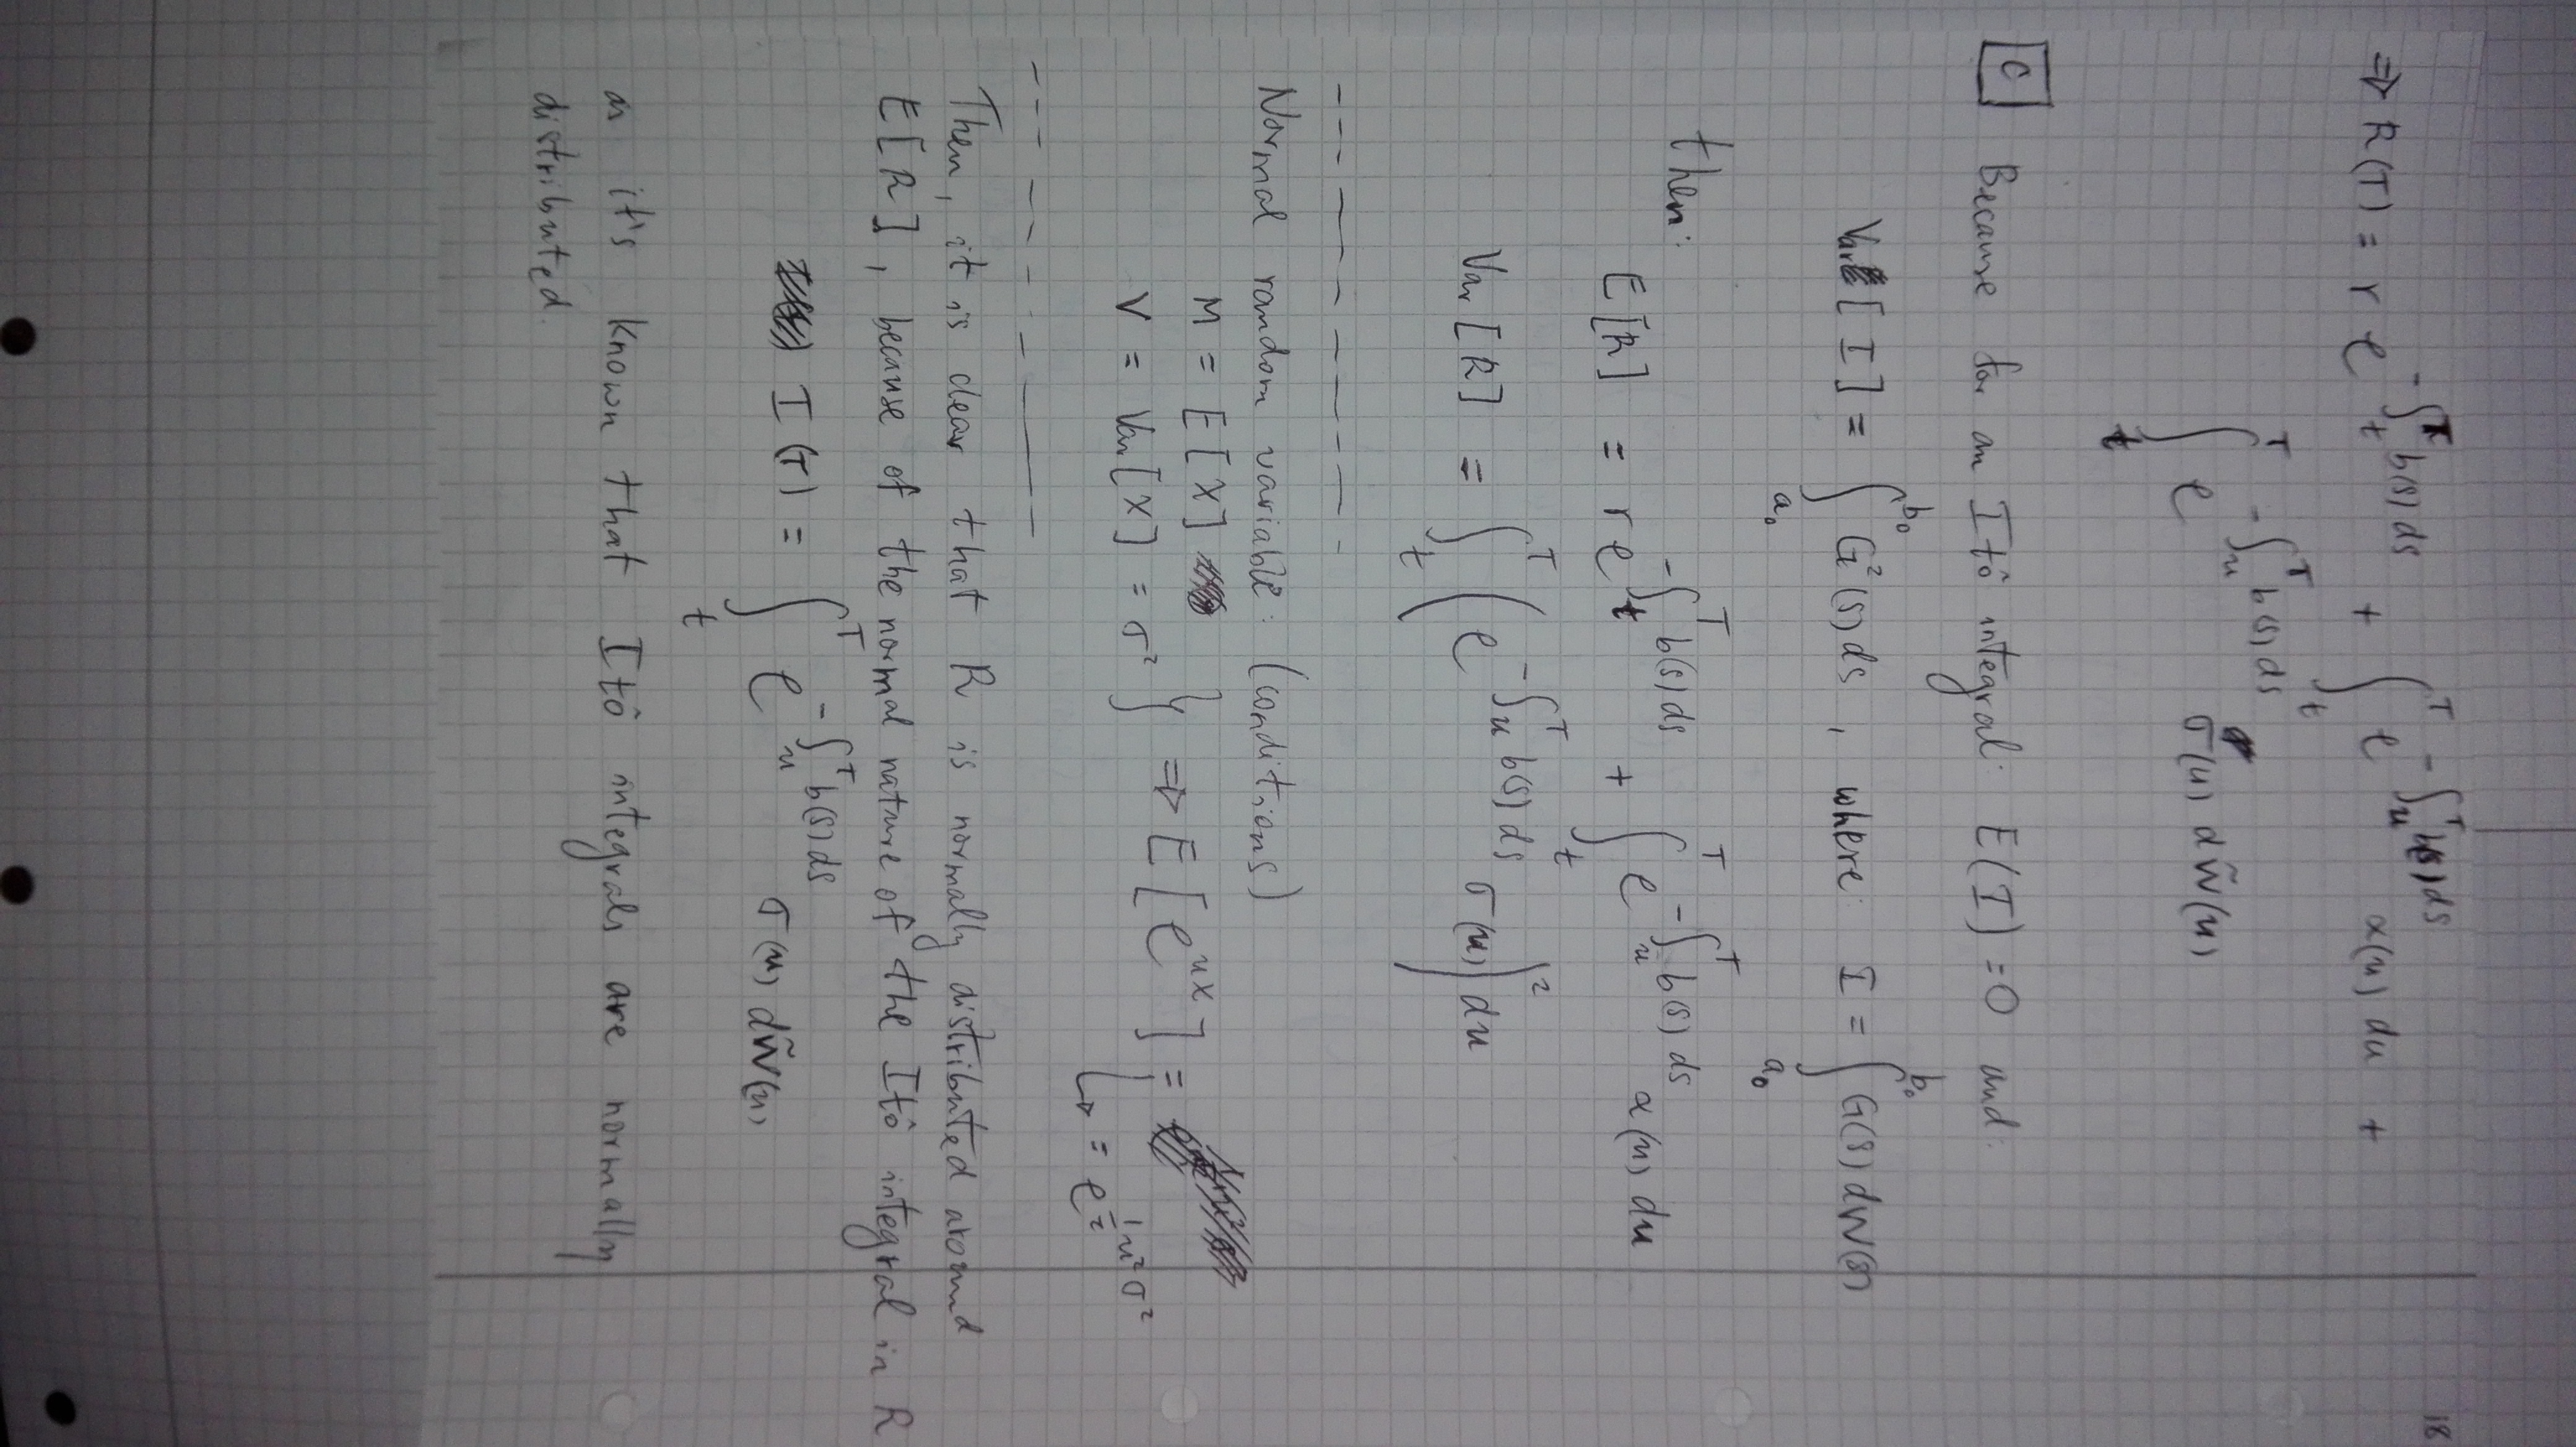 18
⇒ R(T) = r e^{-∫_t^T b(s) ds} + ∫_t^T e^{-∫_u^T b(s) ds} α(u) du +
∫_t^T e^{-∫_u^T b(s) ds} σ(u) dW̃(u)
C Because for an Itô integral: E(I) = 0 and:
Var[I] = ∫_{a₀}^{b₀} G²(s) ds, where: I = ∫_{a₀}^{b₀} G(s) dW(s)
then:
E[R] = r e^{-∫_t^T b(s) ds} + ∫_t^T e^{-∫_u^T b(s) ds} α(u) du
Var[R] = ∫_t^T (e^{-∫_u^T b(s) ds} σ(u))² du
Normal random variable: (conditions)
M = E[X]
V = Var[X] = σ² } ⇒ E[e^{uX}] =
↳ = e^{½u²σ²}
Then, it is clear that R is normally distributed around
E[R], because of the normal nature of the Itô integral in R
I(T) = ∫_t^T e^{-∫_u^T b(s) ds} σ(u) dW̃(u)
as it's known that Itô integrals are normally
distributed.